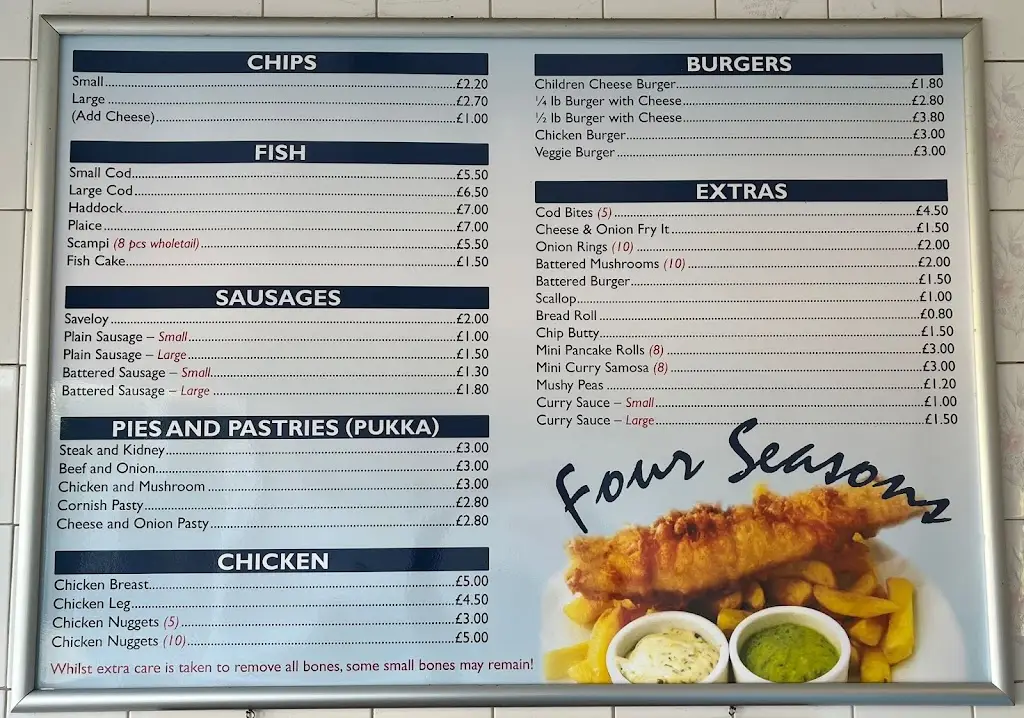 CHIPS
Small £2.20
Large £2.70
(Add Cheese) £1.00
FISH
Small Cod £5.50
Large Cod £6.50
Haddock £7.00
Plaice £7.00
Scampi (8 pcs wholetail) £5.50
Fish Cake £1.50
SAUSAGES
Saveloy £2.00
Plain Sausage – Small £1.00
Plain Sausage – Large £1.50
Battered Sausage – Small £1.30
Battered Sausage – Large £1.80
PIES AND PASTRIES (PUKKA)
Steak and Kidney £3.00
Beef and Onion £3.00
Chicken and Mushroom £3.00
Cornish Pasty £2.80
Cheese and Onion Pasty £2.80
CHICKEN
Chicken Breast £5.00
Chicken Leg £4.50
Chicken Nuggets (5) £3.00
Chicken Nuggets (10) £5.00
Whilst extra care is taken to remove all bones, some small bones may remain!
BURGERS
Children Cheese Burger £1.80
¼ lb Burger with Cheese £2.80
½ lb Burger with Cheese £3.80
Chicken Burger £3.00
Veggie Burger £3.00
EXTRAS
Cod Bites (5) £4.50
Cheese & Onion Fry It £1.50
Onion Rings (10) £2.00
Battered Mushrooms (10) £2.00
Battered Burger £1.50
Scallop £1.00
Bread Roll £0.80
Chip Butty £1.50
Mini Pancake Rolls (8) £3.00
Mini Curry Samosa (8) £3.00
Mushy Peas £1.20
Curry Sauce – Small £1.00
Curry Sauce – Large £1.50
Four Seasons